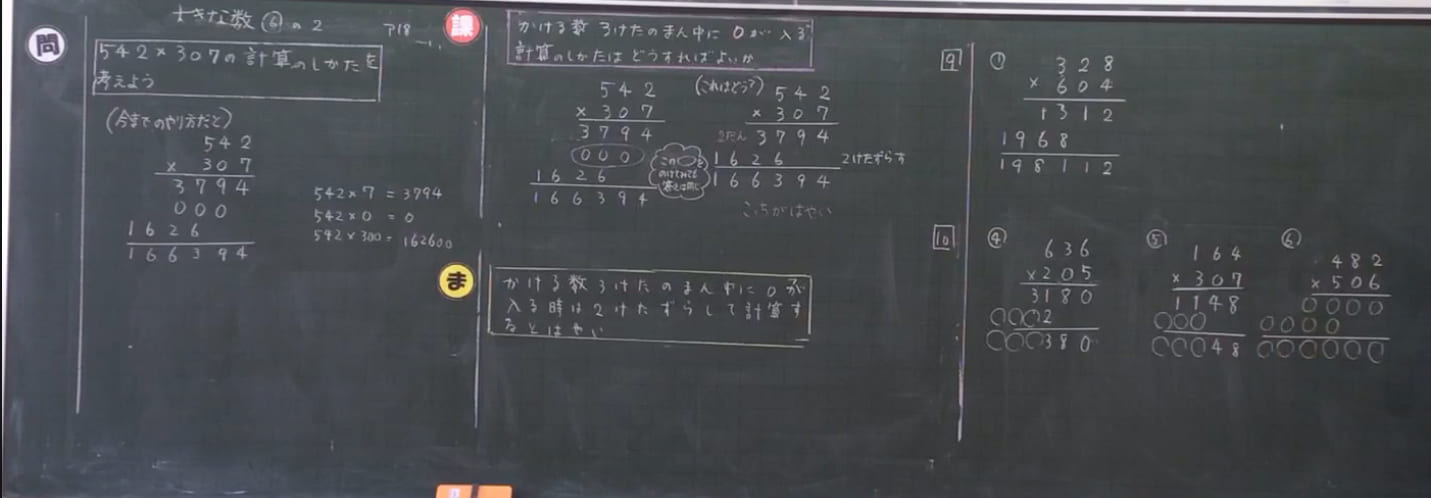 問
大きな数 ⑥の2
ア18
542×307の計算のしかたを
考えよう
(今までのやり方だと)
542
× 307
3794
000
1626
166394
542×7 = 3794
542×0 = 0
542×300 = 162600
課
かける数3けたのまん中に0が入る
計算のしかたはどうすればよいか
542
× 307
3794
000
1626
166394
この○を
のけてみても
答えは同じ
(これはどう?)
542
× 307
2だん 3794
1626 2けたずらす
166394
こっちがはやい
ま
かける数3けたのまん中に0が
入る時は2けたずらして計算す
るとはやい
9
①
328
× 604
1312
1968
198112
10
④
636
×205
3180
○○○2
○○○380
⑤
164
× 307
1148
○○○
○○○48
⑥
482
× 506
○○○○
○○○○
○○○○○○